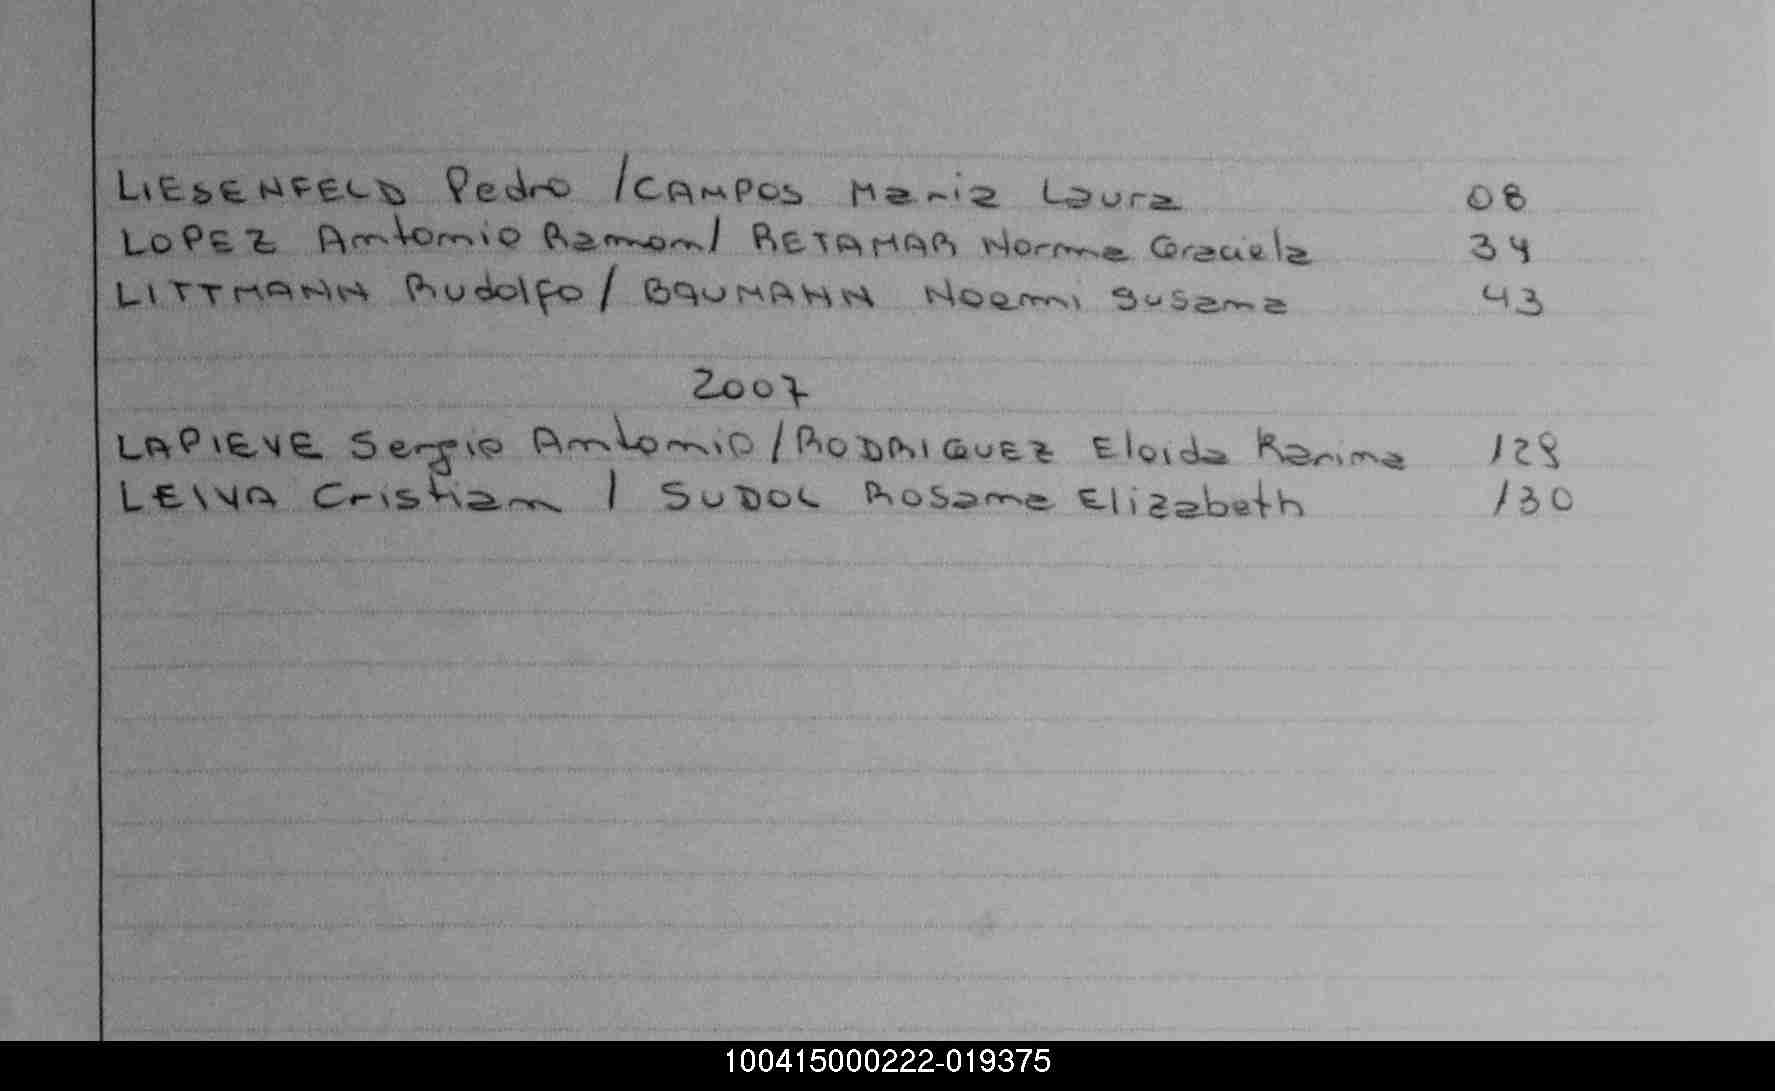 LIESENFELD Pedro / CAMPOS Maria Laura 08
LOPEZ Antonio Ramon / RETAMAR Norma Graciela 34
LITTMANN Rudolfo / BAUMANN Noemi Susana 43
2007
LAPIEVE Sergio Antonio / RODRIGUEZ Eloida Karina 129
LEIVA Cristian / SUDOL Rosana Elizabeth 130
100415000222-019375